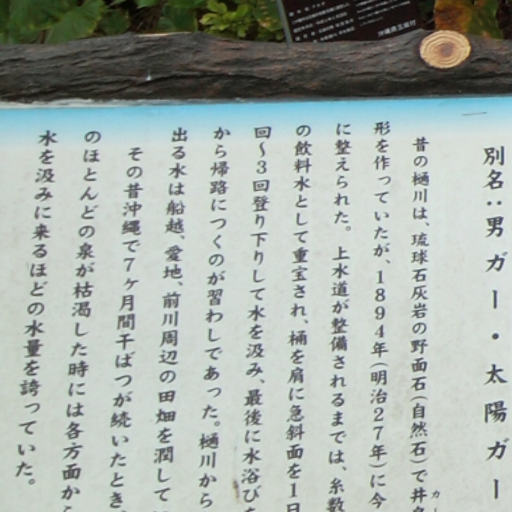 別名：男ガー・太陽ガー
昔の樋川は、琉球石灰岩の野面石(自然石)で井
形を作っていたが、1894年(明治27年)に今
に整えられた。上水道が整備されるまでは、糸数
の飲料水として重宝され、桶を肩に急斜面を1日
回～3回登り下りして水を汲み、最後に水浴びを
から帰路につくのが習わしであった。樋川から
出る水は船越、愛地、前川周辺の田畑を潤して
その昔沖縄で7ヶ月間干ばつが続いたとき
のほとんどの泉が枯渇した時には各方面から
水を汲みに来るほどの水量を誇っていた。